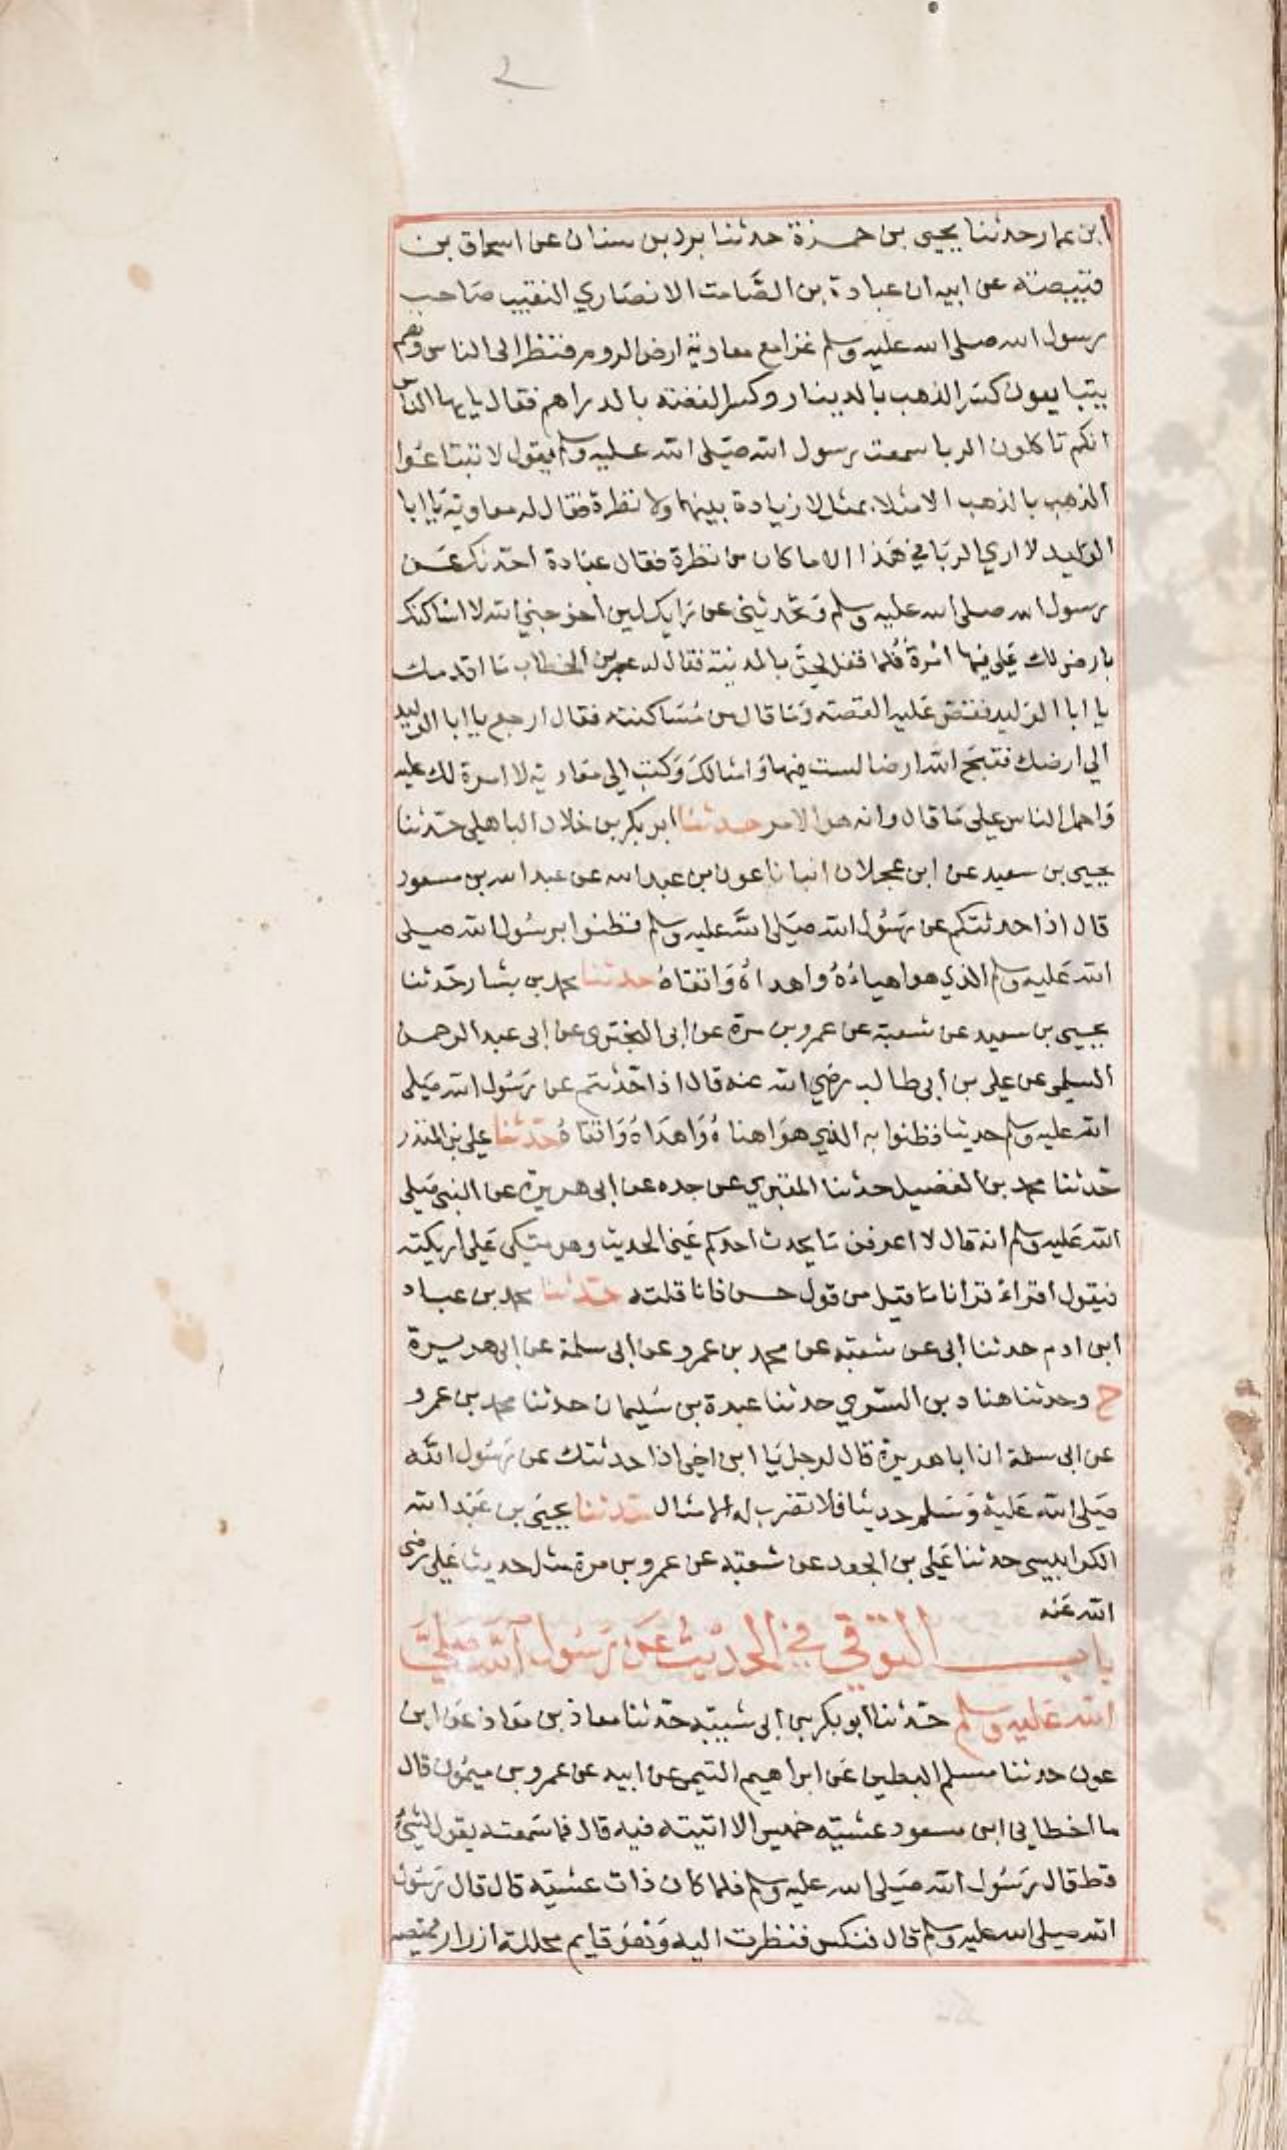 ٢
ابن عمار حدثنا يحيى بن حمزة حدثنا برد بن سنان عن اسحاق بن
قبيصة عن ابيه ان عبادة بن الصَّامت الانصَاري النقيب صَاحب
رسول الله صلى الله عليه وسلم غزا مع معاوية ارض الروم فنظر الى الناس وهم
يتبايعون كسَر الذهب بالدينار وكسر الفضة بالدراهم فقال يايها الناس
انكم تاكلون الربا سمعت رسول الله صَلى الله عليه وسلم يقول لا تبتاعُوا
الذهب بالذهب الا مثلا بمثل لا زيادة بينهما ولا نظرة فقال له معاوية يَا ابا
الوَليد لا اري الربَا في هَذا الا ما كان من نظرة فقال عبَادة احَدثك عَن
رسول الله صلى الله عليه وسلم وَتحَدثني عن رَايك لين اخرجني الله لا اسَاكنك
بارض لك عَلي فيها امْرةٌ فلما قفل لحق بالمدينة فقال له عمر بن الخطاب مَا اقدمك
يا ابا الوَليد فقصَّ عَليه القصة وَمَا قال من مُسَاكنته فقال ارجع يا ابا الوليد
الي ارضك فقبحَ الله ارضا لست فيها وَامثالكَ وَكتب الى معَاوية لا امرة لك عليه
وَاحمل الناس على مَا قال فانه هو الامر حدثنا ابو بكر بن خلاد الباهلي حَدثنا
يحيى بن سعيد عن ابن عجلان انبانا عون بن عبد الله عن عبد الله بن مسعود
قال اذا حدثتكم عن رَسُول الله صَلى اللَّه عليه وسلم فظنوا برسُول الله صلى
الله عَليه وسلم الذي هو اهياءهُ واهداهُ وَاتقاهُ حدثنا محمد بن بشار حَدثنا
يحيى بن سعيد عن شعبة عن عمرو بن مرة عن ابى البختري عن ابى عبد الرحمن
السلمي عن علي بن ابى طالب رضي الله عنه قال اذا حَدثتم عن رَسُول الله صَلى
الله عليه وسلم حديثا فظنوا به الذي هوَ اهناهُ وَاهدَاهُ وَاتقاهُ حَدثنا علي بن المنذر
حَدثنا محمد بن الفضيل حدثنا المقبري عن جده عن ابى هريرة عن النبي صَلى
الله عَليه وسلم انه قال لا اعرفن مَا يحدث احدكم عَني الحديث وهو متكي عَلى اريكته
فيقول اقراء قرانا مَا قيل من قول حسن فانا قلته حَدثنا محمد بن عباد
ابن ادم حدثنا ابى عن شعبة عن محمد بن عمرو عن ابى سلمة عن ابى هريرة
ح وحدثنا هناد بن السَري حدثنا عبدة بن سُليمان حدثنا محمد بن عمرو
عن ابى سلمة ان ابا هريرة قال لرجل يَا ابن اخي اذا حدثتك عن رَسُول اللَّه
صَلى الله عَليه وَسَلم حديثا فلا تضرب له الامثال حَدثنا يحيَى بن عَبْد الله
الكرابيسي حدثنا عَلي بن الجعد عن شعبة عن عمرو بن مرة مثل حديث عَلي رضى
الله عَنه
باب التوَقي في الحديْث عَن رَسُول الله صَلى
الله عَليه وسلم حَدثنا ابو بكر بن ابى شيبة حَدثنا معاذ بن معَاذ عَن ابن
عون حدثنا مسلم البطين عَن ابراهيم التيمي عن ابيه عن عمرو بن ميمُون قال
ما اخطاني ابن مسعود عشية خميس الا اتيته فيه قال فما سَمعته يقول لشيءٍ
قط قال رَسُول الله صَلى الله عليه وسلم فلما كان ذات عشية قال قال رَسُول
الله صلى الله عليه وسلم قال فنكس فنظرت اليه وَهُوَ قايم محللة ازرار قميصه